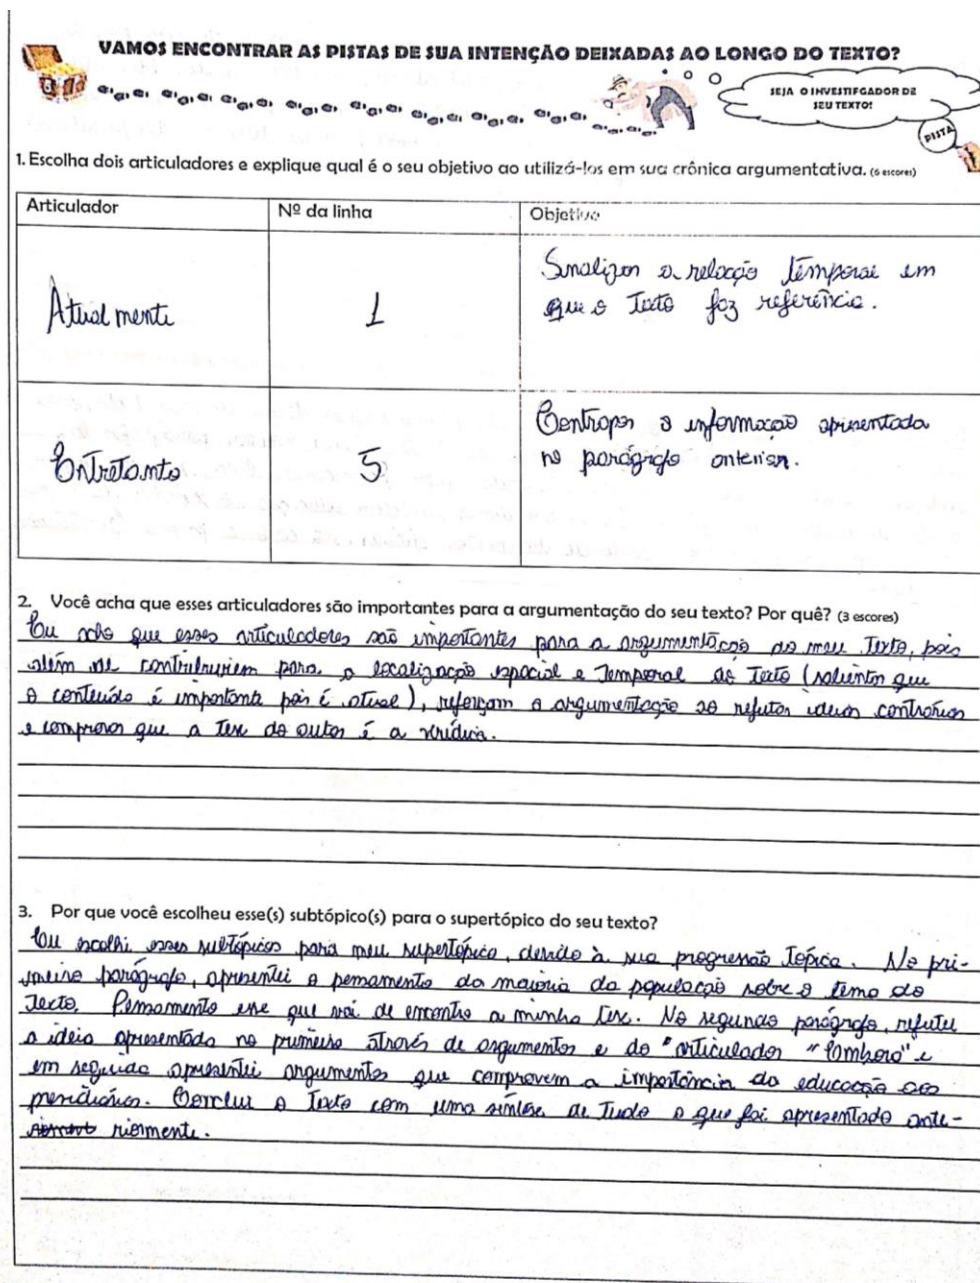 VAMOS ENCONTRAR AS PISTAS DE SUA INTENÇÃO DEIXADAS AO LONGO DO TEXTO?
SEJA O INVESTIFGADOR DE
SEU TEXTO!
PISTA
1. Escolha dois articuladores e explique qual é o seu objetivo ao utilizá-los em sua crônica argumentativa. (6 escores)
Articulador Nº da linha Objetivo
Atualmente 1 Sinalizar a relação temporal em
que o texto faz referência.
Entretanto 5 Contrapor a informação apresentada
no parágrafo anterior.
2. Você acha que esses articuladores são importantes para a argumentação do seu texto? Por quê? (3 escores)
Eu acho que esses articuladores são importantes para a argumentação do meu texto, pois
além de contribuirem para a localização espacial e temporal do texto (salientar que
o conteúdo é importante pois é atual), reforçam a argumentação ao refutar ideias contrárias
e comprovar que a tese do autor é a verídica.
3. Por que você escolheu esse(s) subtópico(s) para o supertópico do seu texto?
Eu escolhi esses subtópicos para meu supertópico, devido à sua progressão tópica. No pri-
meiro parágrafo, apresentei o pensamento da maioria da população sobre o tema do
texto. Pensamento esse que vai de encontro a minha tese. No segundo parágrafo, refutei
a ideia apresentada no primeiro através de argumentos e do "articulador "Embora" e
em seguida apresentei argumentos que comprovem a importância da educação aos
presidiários. Conclui o texto com uma síntese de tudo o que foi apresentado ante-
riormente.